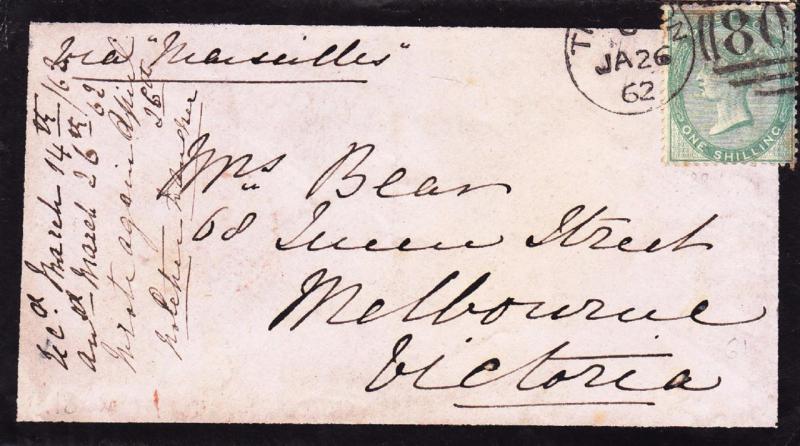 via "Marseilles"
Mrs Bear
68 Queen Street
Melbourne
Victoria
T
JA 26
62
780
ONE SHILLING
Rec.d March 14th /62
and March 26th /62
Wrote again April
26th